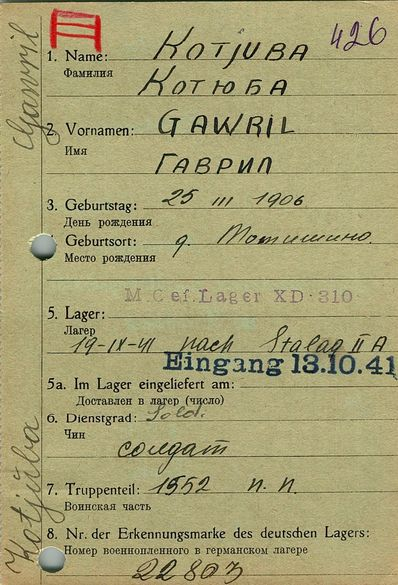 426
1. Name: KOTJUBA
Фамилия КОТЮБА
2. Vornamen: GAWRIL
Имя ГАВРИЛ
3. Geburtstag: 25 III 1906
День рождения
4. Geburtsort: д. Мотишино.
Место рождения
M.Gef.Lager XD 310
5. Lager:
Лагер
19-IX-41 nach Stalag II A
Eingang 13.10.41
5a. Im Lager eingeliefert am:
Доставлен в лагер (число)
6. Dienstgrad: Sold.
Чин солдат
7. Truppenteil: 1552 п. п.
Воинская часть
8. Nr. der Erkennungsmarke des deutschen Lagers:
Номер военнопленного в германском лагере
22803
Kotjuba Gawril